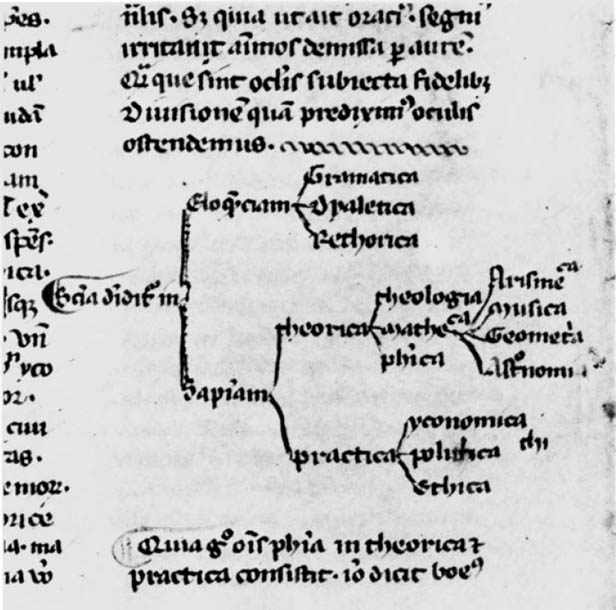 p̄es.
mpla
ul'
udā
con
am
spēs.
vn̄
yco
or.
cuu
as.
emorꝛ.
orice
a. ma
n̄lis. Sꝫ quia ut ait oraciꝰ. segniꝰ
irritant aīmos demissa p aurē.
Q̄ que sint oclīs subiecta fidelibꝫ
Diuisionē quā prediximꝰ oculis
ostendemus.
Scīa diuidit̄ in
Eloq̄ciam
Gramatica
Dyaletica
Rethorica
Sapīam
theorica
theologia
matheca
phīca
Arismeca
Musica
Geometīa
Ast̊nomia
practica
yconomica
politica
Ethica
Quia g̊ oīs phīa in theorica ⁊
practica consistit. iō dicit boeꝰ